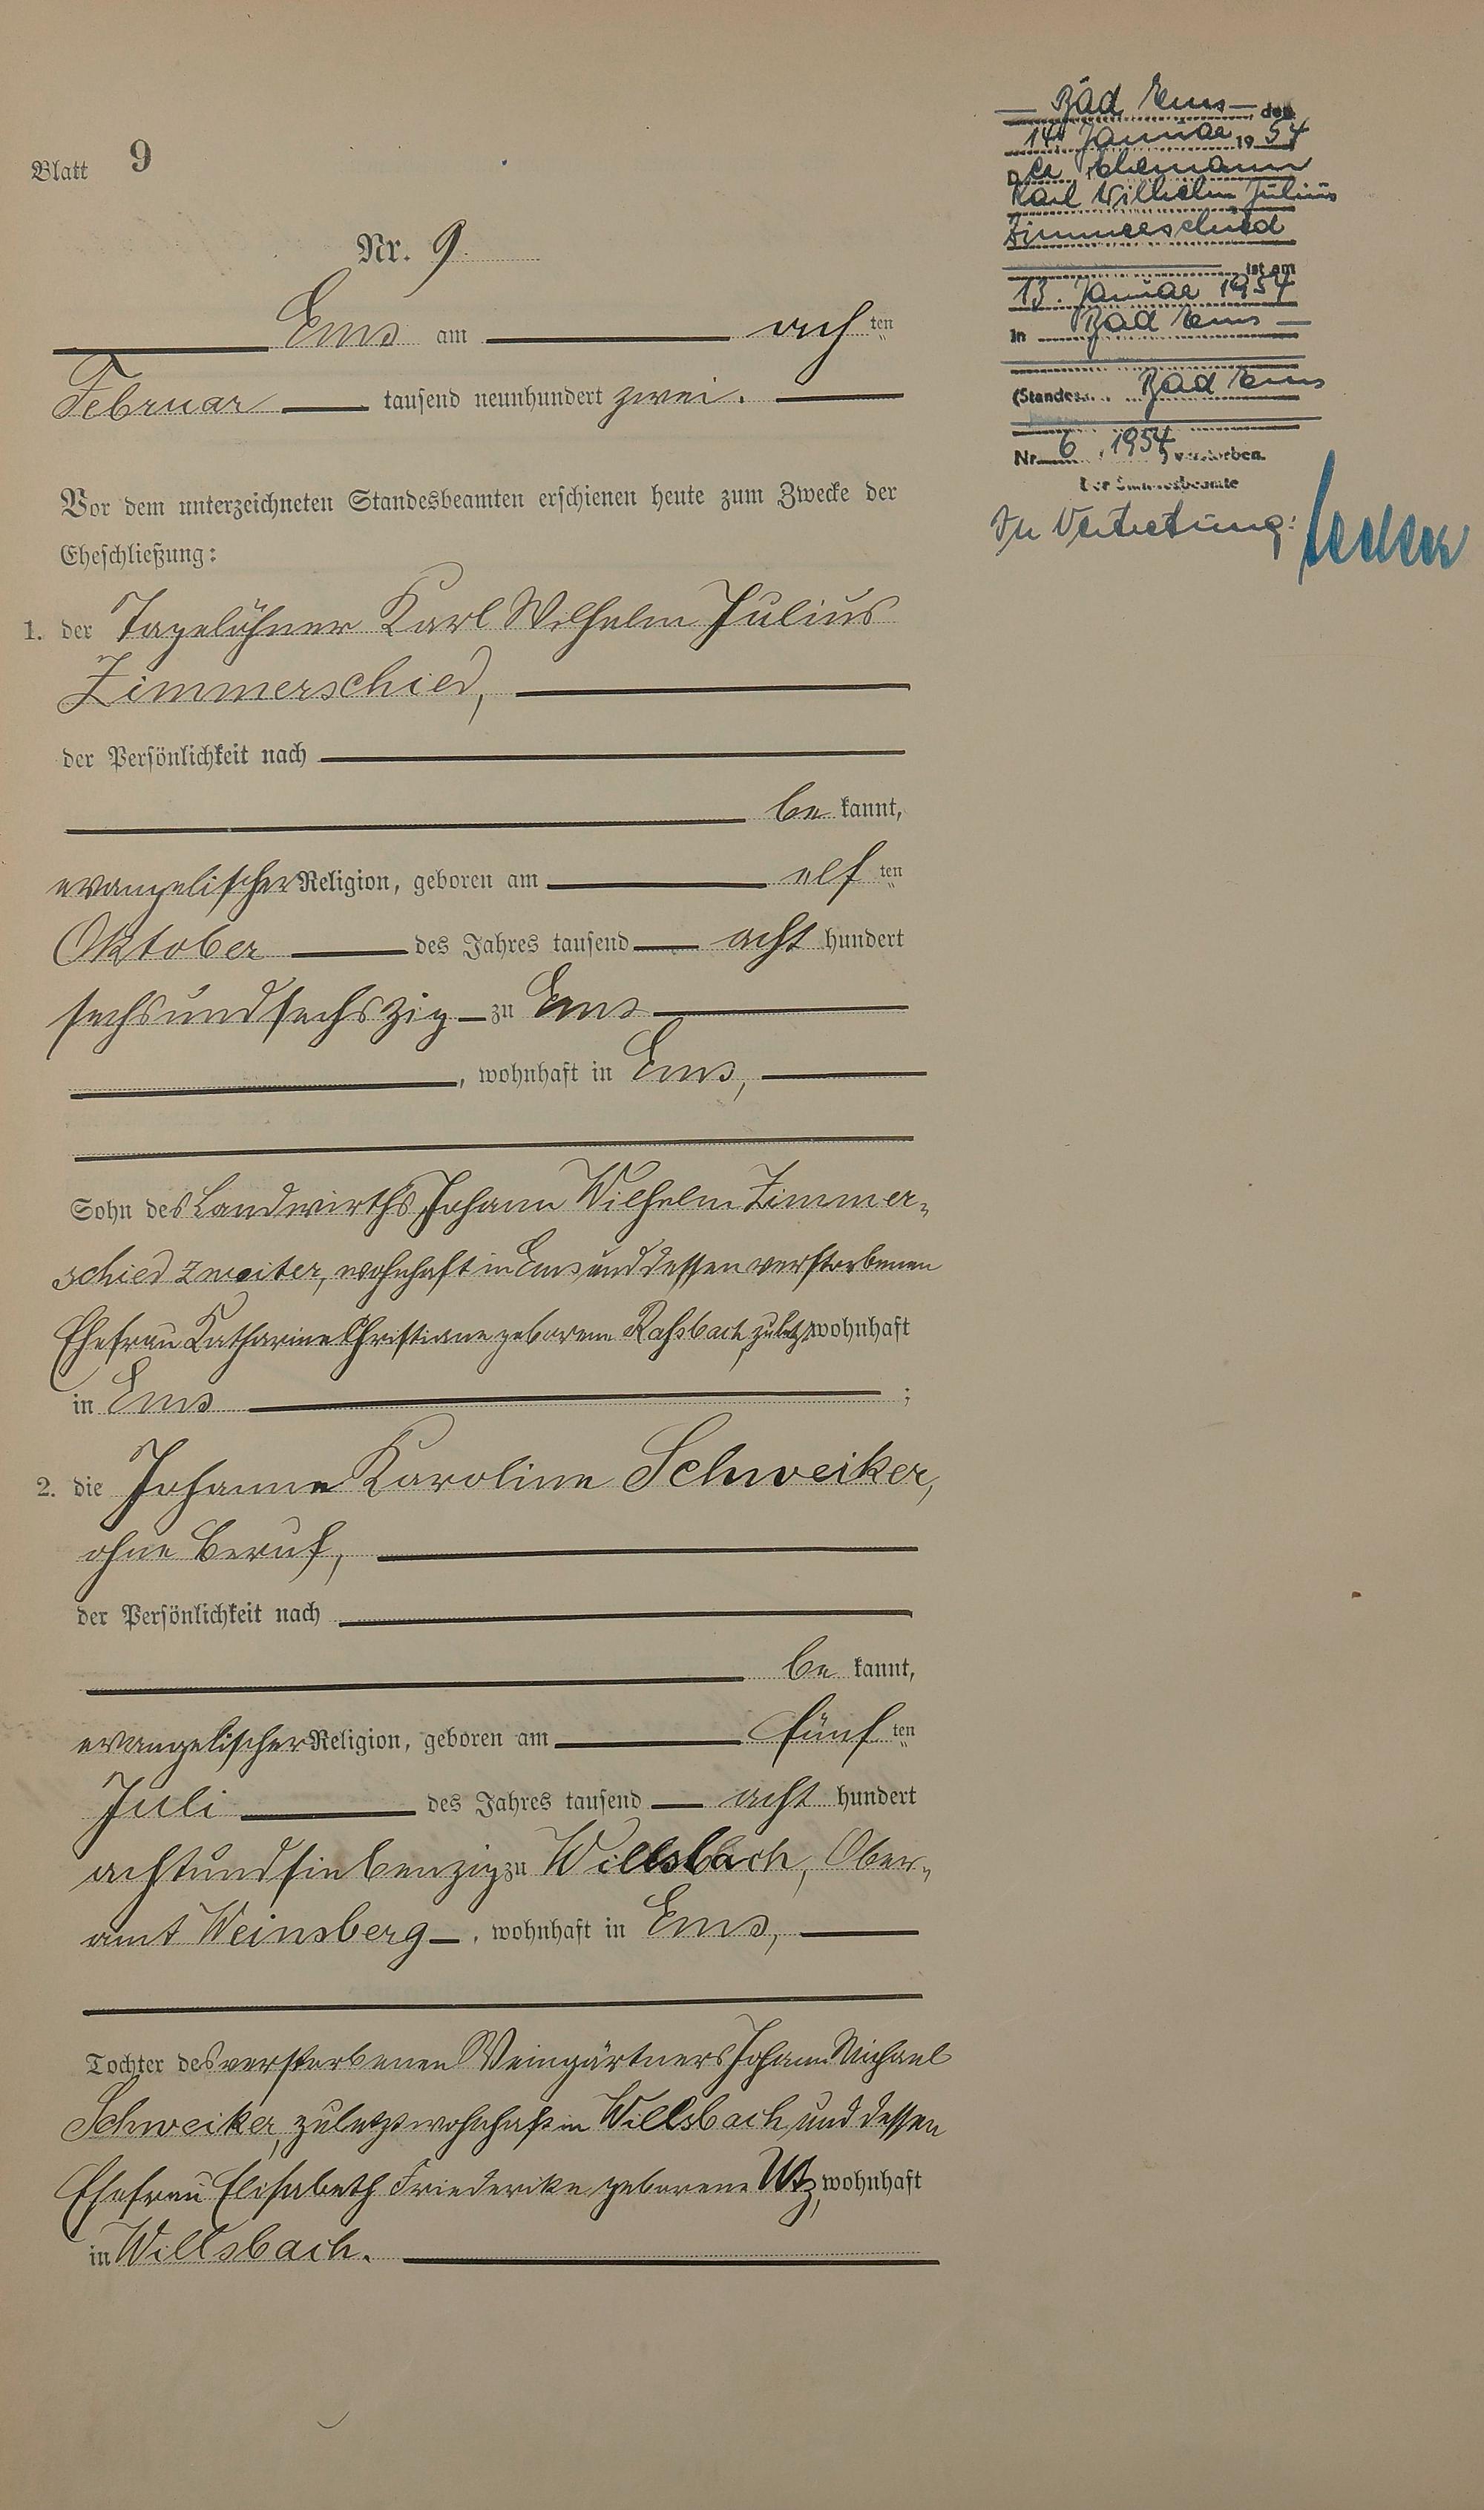 Blatt 9
Nr. 9.
Ems am achten
Februar tausend neunhundert zwei.
Vor dem unterzeichneten Standesbeamten erschienen heute zum Zwecke der
Eheschließung:
1. der Tagelöhner Karl Wilhelm Julius
Zimmerschied,
der Persönlichkeit nach
be kannt,
evangelischer Religion, geboren am elften
Oktober des Jahres tausend acht hundert
sechsundsechszig zu Ems
, wohnhaft in Ems,
Sohn des Landwirths Johann Wilhelm Zimmer-
schied zweiter, wohnhaft in Ems und dessen verstorbenen
Ehefrau Katharine Christiane geborene Raßbach, zuletzt wohnhaft
in Ems ;
2. die Johanne Karoline Schweiker,
ohne Beruf,
der Persönlichkeit nach
be kannt,
evangelischer Religion, geboren am fünften
Juli des Jahres tausend acht hundert
achtundsiebenzig zu Willsbach, Ober-
amt Weinsberg, wohnhaft in Ems,
Tochter des verstorbenen Weingärtners Johann Michael
Schweiker, zuletzt wohnhaft in Willsbach und dessen
Ehefrau Elisabeth Friederike geborene Utz, wohnhaft
in Willsbach.
Bad Ems, den
14. Januar 1954
Der Ehemann
Karl Wilhelm Julius
Zimmerschied
ist am
13. Januar 1954
in Bad Ems
(Standes... Bad Ems
Nr. 6, 1954) verstorben.
Der Standesbeamte
In Vertretung: